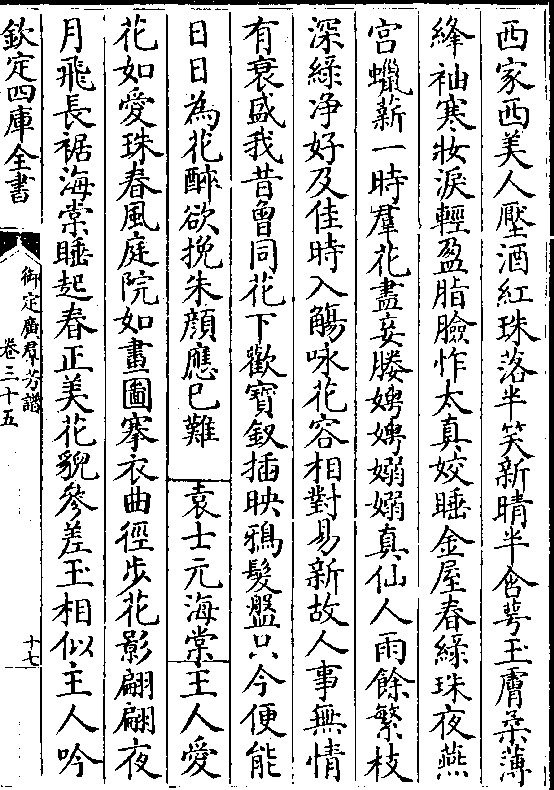 西家西美人壓酒紅珠落半笑新晴半含萼玉膚柔薄
絳袖寒妝淚輕盈脂臉怍太真姣睡金屋春綠珠夜燕
宮蠟薪一時羣花盡妾媵娉娉嫋嫋真仙人雨餘繁枝
深綠净好及佳時入觴咏花容相對易新故人事無情
有衰盛我昔曾同花下歡寶釵插映鴉髮盤只今便能
日日為花醉欲挽朱顔應已難 袁士元海棠主人愛
花如愛珠春風庭院如畫圖搴衣曲徑步花影翩翩夜
月飛長裾海棠睡起春正美花貌參差玉相似主人吟
欽定四庫全書
御定廣群芳譜
卷三十五
十七